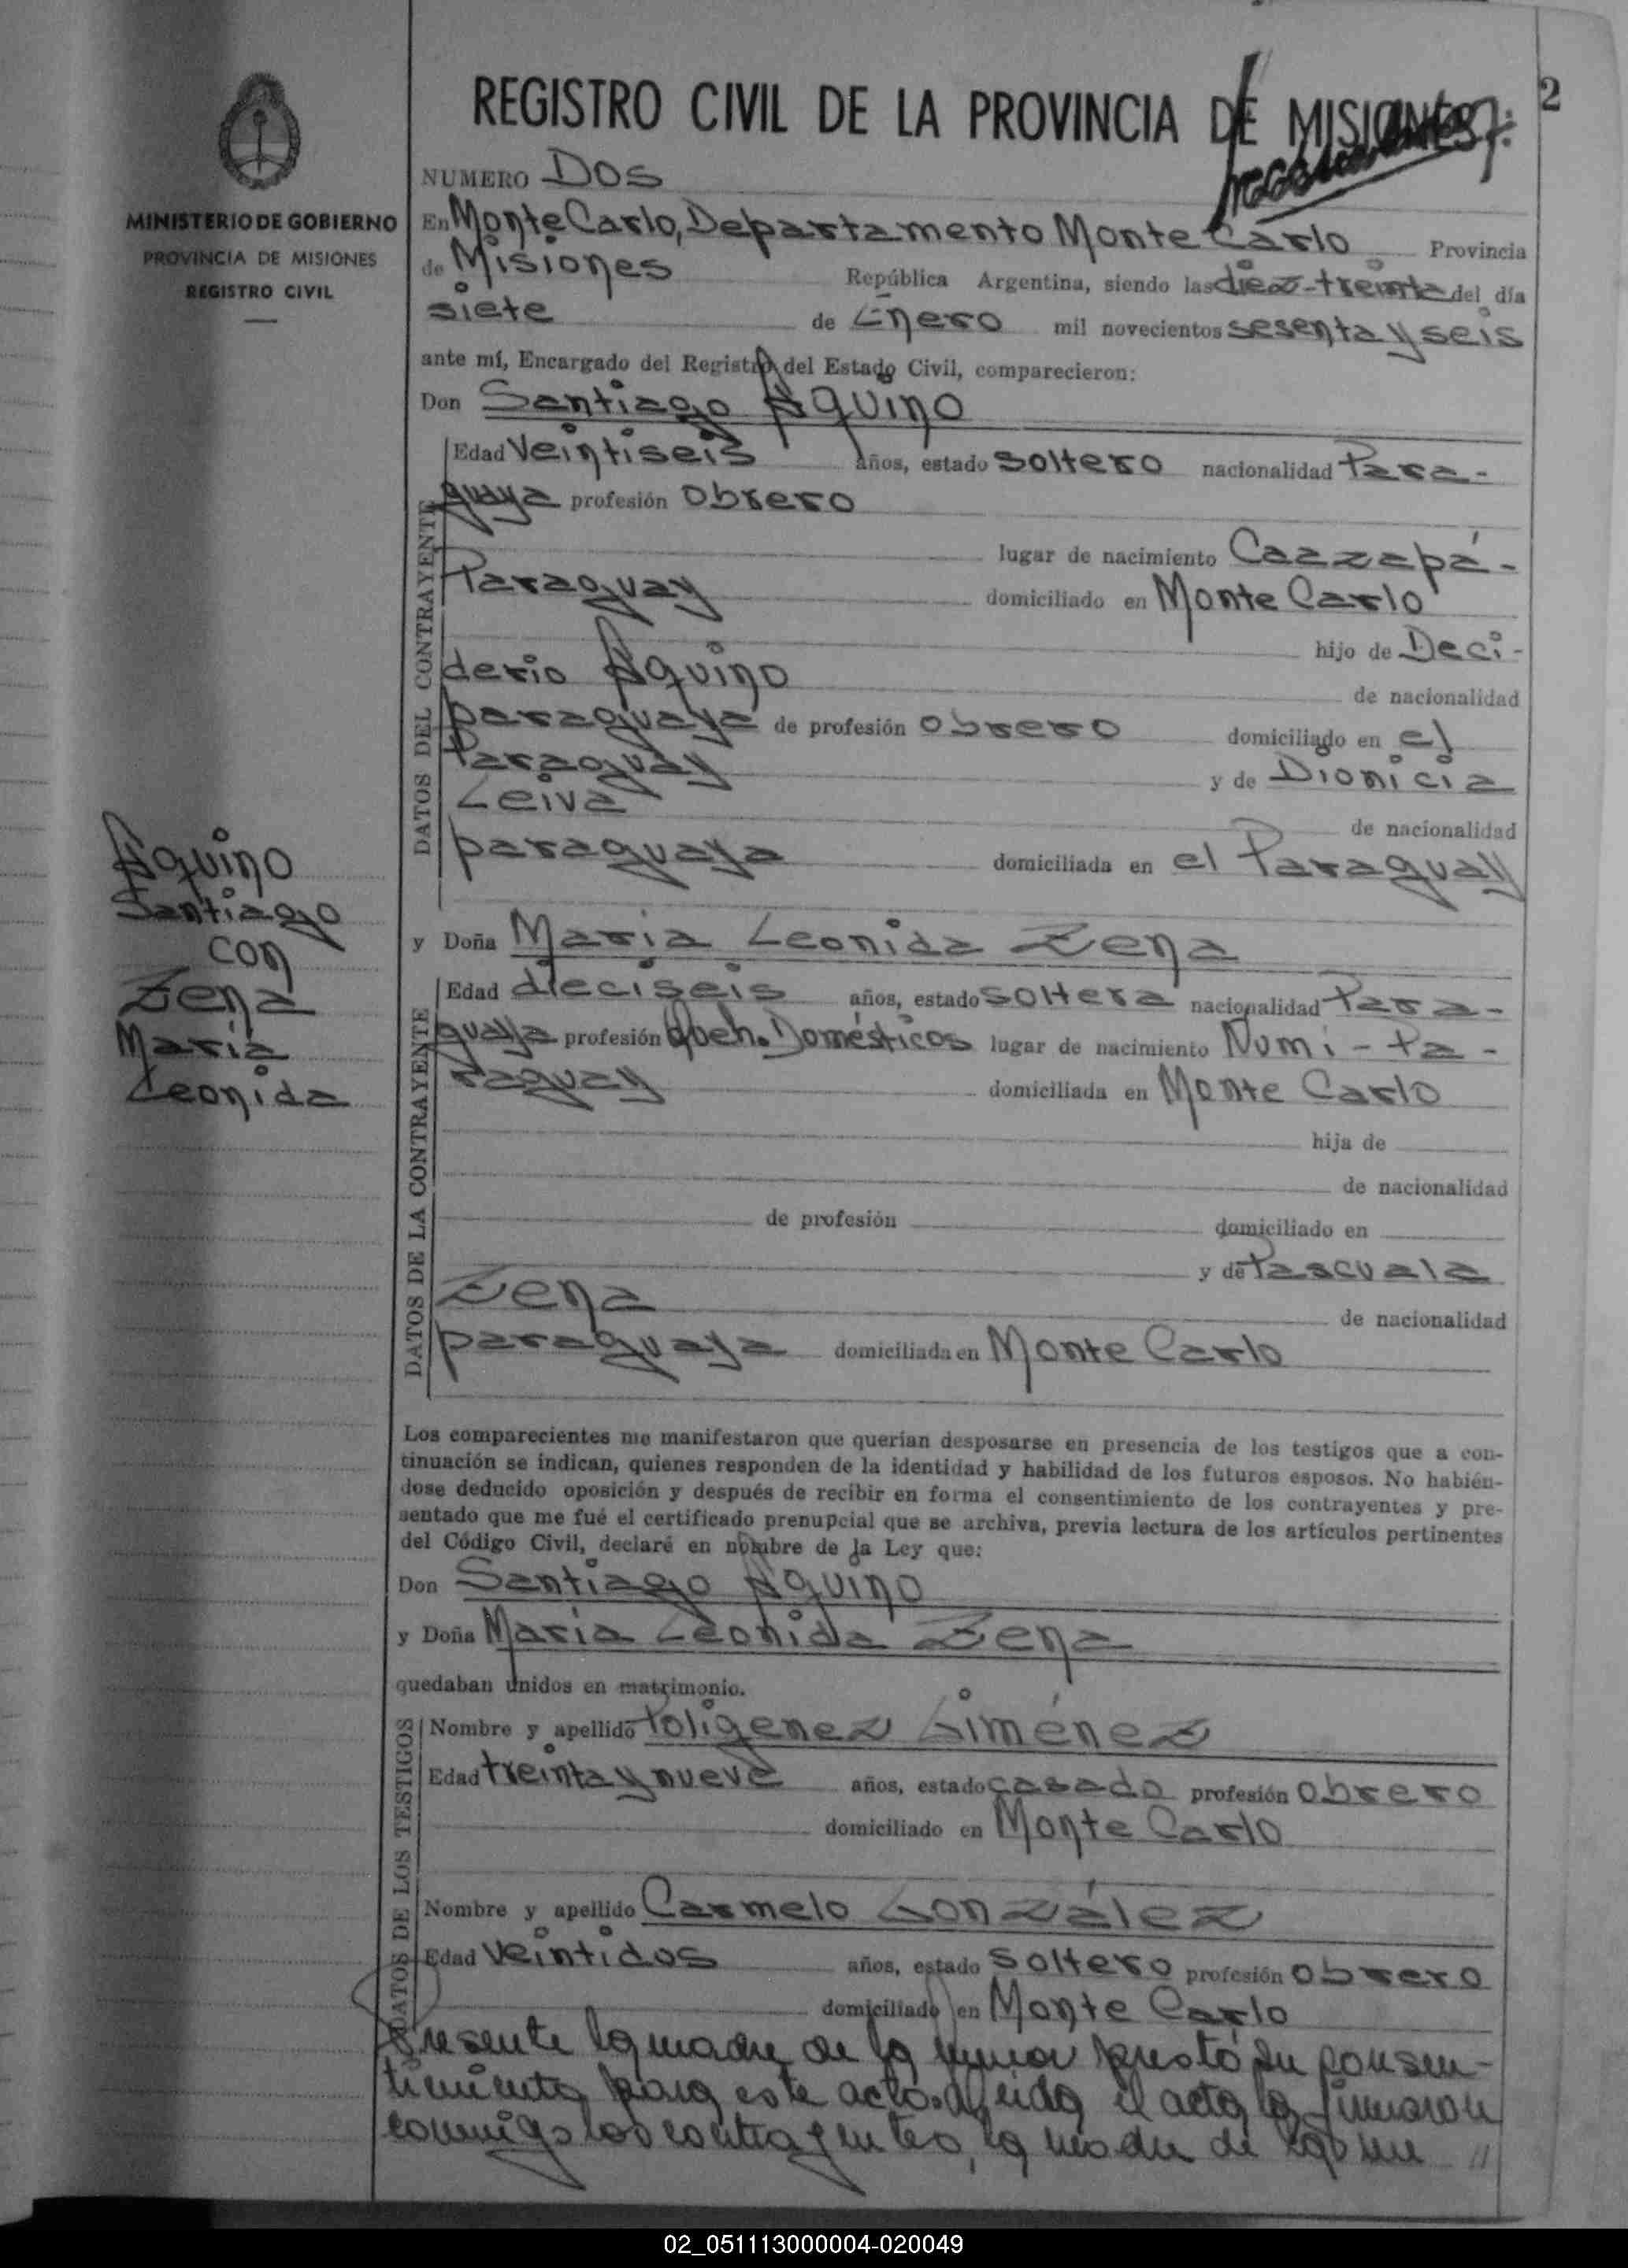 REGISTRO CIVIL DE LA PROVINCIA DE MISIONES
2
MINISTERIO DE GOBIERNO
PROVINCIA DE MISIONES
REGISTRO CIVIL
NUMERO Dos
En Monte Carlo, Departamento Monte Carlo Provincia
de Misiones República Argentina, siendo las diez-treinta del día
siete de Enero mil novecientos sesenta y seis
ante mí, Encargado del Registro del Estado Civil, comparecieron:
Don Santiago Aquino
DATOS DEL CONTRAYENTE
Edad veintiseis años, estado soltero nacionalidad Para-
guaya profesión obrero
lugar de nacimiento Caazapá-
Paraguay domiciliado en Monte Carlo
hijo de Deci-
derio Aquino de nacionalidad
paraguaya de profesión obrero domiciliado en el
Paraguay y de Dionicia
Leiva de nacionalidad
paraguaya domiciliada en el Paraguay
Aquino
Santiago
con
Zena
María
Leonida
y Doña María Leonida Zena
DATOS DE LA CONTRAYENTE
Edad dieciseis años, estado soltera nacionalidad Para-
guaya profesión Queh. Domésticos lugar de nacimiento Numi-Pa-
raguay domiciliada en Monte Carlo
hija de
de nacionalidad
de profesión domiciliado en
y de Pascuala
Zena de nacionalidad
paraguaya domiciliada en Monte Carlo
Los comparecientes me manifestaron que querían desposarse en presencia de los testigos que a con-
tinuación se indican, quienes responden de la identidad y habilidad de los futuros esposos. No habién-
dose deducido oposición y después de recibir en forma el consentimiento de los contrayentes y pre-
sentado que me fué el certificado prenupcial que se archiva, previa lectura de los artículos pertinentes
del Código Civil, declaré en nombre de la Ley que:
Don Santiago Aquino
y Doña María Leonida Zena
quedaban unidos en matrimonio.
DATOS DE LOS TESTIGOS
Nombre y apellido Poligenez Giménez
Edad treinta y nueve años, estado casado profesión obrero
domiciliado en Monte Carlo
Nombre y apellido Carmelo González
Edad veintidos años, estado soltero profesión obrero
domiciliado en Monte Carlo
Presente la madre de la menor prestó su consen-
timiento para este acto. Leida el acta la firmaron
conmigo los contrayentes, la madre de la me //
02_051113000004-020049